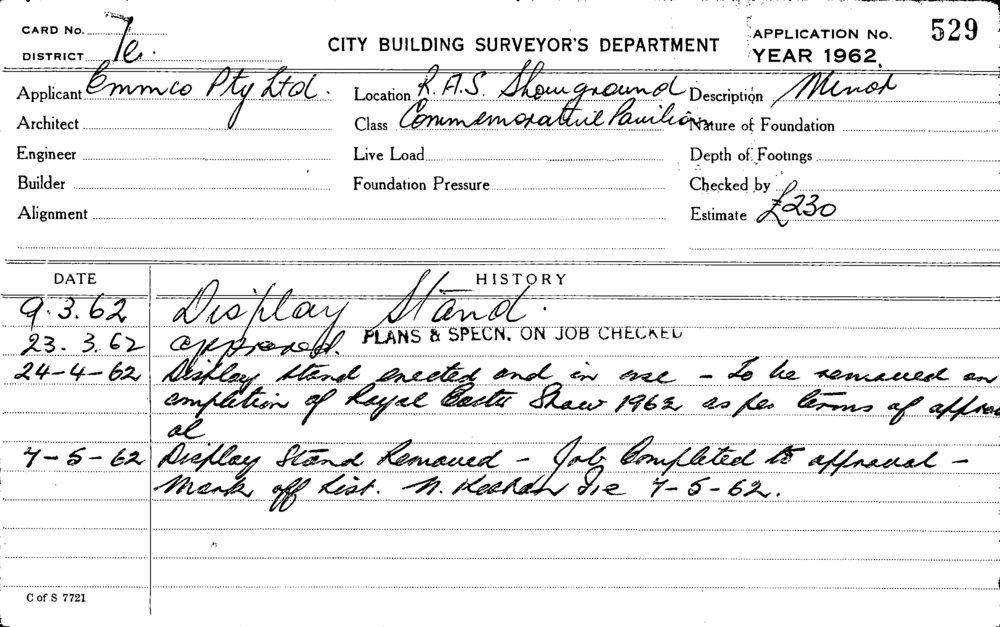 CARD No.
DISTRICT 7e.
CITY BUILDING SURVEYOR'S DEPARTMENT
APPLICATION No. 529
YEAR 1962.
Applicant Emmco Pty Ltd. Location R.A.S. Showground Description Minor
Architect Class Commemorative Pavilion Nature of Foundation
Engineer Live Load Depth of Footings
Builder Foundation Pressure Checked by
Alignment Estimate £230
DATE HISTORY
9.3.62 Display Stand.
23.3.62 approved. PLANS & SPECN. ON JOB CHECKED
24-4-62 Display stand erected and in use - To be removed on
completion of Royal Easter Show 1962 as per terms of approv
al
7-5-62 Display Stand Removed - Job Completed to approval -
Mark off List. 7-5-62.
C of S 7721